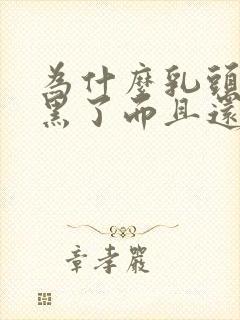 為什麼乳頭
黑了而且還
章孝嚴